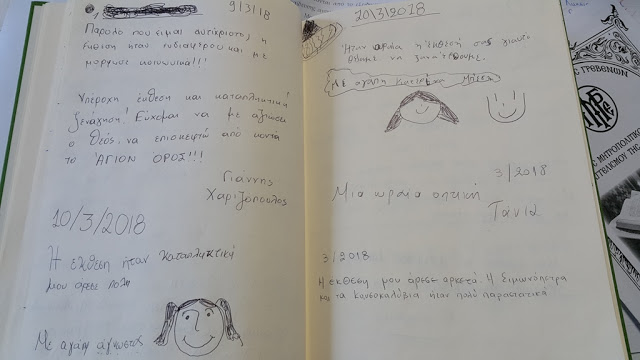 9/3/18
Παρόλο που είμαι αντίχριστος η
έκθεση ήταν ενδιαφέρου και με
μόρφωσε κοινωνικά!!!
Υπέροχη έκθεση και καταπληκτική
ξενάγηση! Εύχομαι να με αξιώσει
ο Θεός, να επισκεφτώ από κοντά
το ΆΓΙΟΝ ΌΡΟΣ!!!
Γιάννης
Χαριζόπουλος
10/3/2018
Η έκθεση ήταν καταπληκτική
μου άρεσε πολύ
Με αγάπη άγνωστος
10/3/2018
Ήταν ωραία η έκθεσή σας γιαυτό
θέλαμε να ξαναέρθουμε.
ΜΕ αγάπη
3/2018
Μια ωραία οπτική
Τάνια
3/2018
Η έκθεση μου άρεσε αρκετά. Η Σιμωνόπετρα
και τα Καυσοκαλύβια ήταν πολύ παραστατικά
ΓΡΕΒΕΝΩΝ
ΜΗΤΡΟΠΟΛΙΤΟΥ